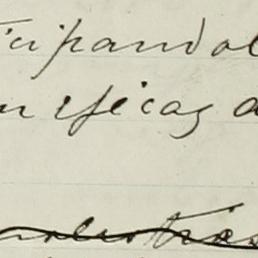 ticipandol
n eficaz a